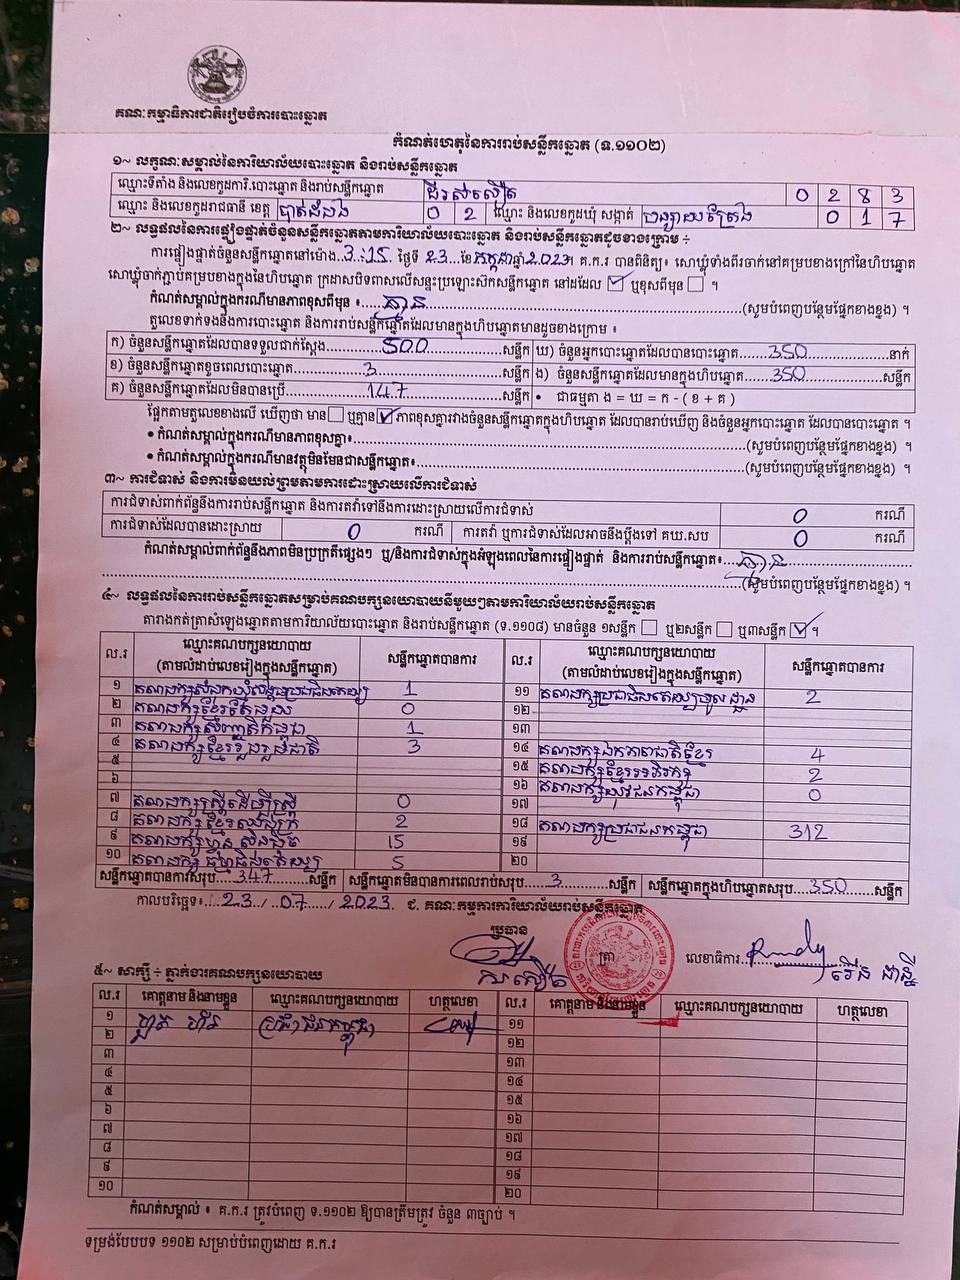 គណៈកម្មាធិការជាតិរៀបចំការបោះឆ្នោត
កំណត់ហេតុនៃការរាប់សន្លឹកឆ្នោត (ទ.១១០២)
១~ លក្ខណៈសម្គាល់នៃការិយាល័យបោះឆ្នោត និងរាប់សន្លឹកឆ្នោត
ឈ្មោះទីតាំង និងលេខកូដការិ.បោះឆ្នោត និងរាប់សន្លឹកឆ្នោត 0 2 8 3
ឈ្មោះ និងលេខកូដរាជធានី ខេត្ត បាត់ដំបង 0 2 ឈ្មោះ និងលេខកូដឃុំ សង្កាត់ បន្សាយត្រែង 0 1 7
២~ លទ្ធផលនៃការផ្ទៀងផ្ទាត់ចំនួនសន្លឹកឆ្នោតតាមការិយាល័យបោះឆ្នោត និងរាប់សន្លឹកឆ្នោតដូចខាងក្រោម ÷
ការផ្ទៀងផ្ទាត់ចំនួនសន្លឹកឆ្នោតនៅម៉ោង 3:15 ថ្ងៃទី 23 ខែ កក្កដា ឆ្នាំ 2023។ គ.ក.រ បានពិនិត្យ៖ សោឃ្លុំទាំងពីរចាក់នៅគម្របខាងក្រៅនៃហិបឆ្នោត
សោឃ្លុំចាក់ភ្ជាប់គម្របខាងក្នុងនៃហិបឆ្នោត ក្រដាសបិទពាសលើសន្ទះប្រឡោះស៊កសន្លឹកឆ្នោត នៅដដែល ☑ ឬខុសពីមុន ☐ ។
កំណត់សម្គាល់ក្នុងករណីមានភាពខុសពីមុន ៖ គ្មាន (សូមបំពេញបន្ថែមផ្នែកខាងខ្នង) ។
តួលេខទាក់ទងនឹងការបោះឆ្នោត និងការរាប់សន្លឹកឆ្នោតដែលមានក្នុងហិបឆ្នោតមានដូចខាងក្រោម ៖
ក) ចំនួនសន្លឹកឆ្នោតដែលបានទទួលជាក់ស្តែង 500 សន្លឹក ឃ) ចំនួនអ្នកបោះឆ្នោតដែលបានបោះឆ្នោត 350 នាក់
ខ) ចំនួនសន្លឹកឆ្នោតខូចពេលបោះឆ្នោត 3 សន្លឹក ង) ចំនួនសន្លឹកឆ្នោតដែលមានក្នុងហិបឆ្នោត 350 សន្លឹក
គ) ចំនួនសន្លឹកឆ្នោតដែលមិនបានប្រើ 147 សន្លឹក • ជាធម្មតា ង = ឃ = ក - ( ខ + គ )
ផ្អែកតាមតួលេខខាងលើ ឃើញថា មាន ☐ ឬគ្មាន ☑ ភាពខុសគ្នារវាងចំនួនសន្លឹកឆ្នោតក្នុងហិបឆ្នោត ដែលបានរាប់ឃើញ និងចំនួនអ្នកបោះឆ្នោត ដែលបានបោះឆ្នោត ។
• កំណត់សម្គាល់ក្នុងករណីមានភាពខុសគ្នា៖ (សូមបំពេញបន្ថែមផ្នែកខាងខ្នង) ។
• កំណត់សម្គាល់ក្នុងករណីមានវត្ថុមិនមែនជាសន្លឹកឆ្នោត៖ (សូមបំពេញបន្ថែមផ្នែកខាងខ្នង) ។
៣~ ការជំទាស់ និងការមិនយល់ព្រមតាមការដោះស្រាយលើការជំទាស់
ការជំទាស់ពាក់ព័ន្ធនឹងការរាប់សន្លឹកឆ្នោត និងការតវ៉ាទៅនឹងការដោះស្រាយលើការជំទាស់ 0 ករណី
ការជំទាស់ដែលបានដោះស្រាយ 0 ករណី ការតវ៉ា ឬការជំទាស់ដែលអាចនឹងប្តឹងទៅ គឃ.សប 0 ករណី
កំណត់សម្គាល់ពាក់ព័ន្ធនឹងភាពមិនប្រក្រតីផ្សេងៗ ឬ/និងការជំទាស់ក្នុងអំឡុងពេលនៃការផ្ទៀងផ្ទាត់ និងការរាប់សន្លឹកឆ្នោត៖ គ្មាន
(សូមបំពេញបន្ថែមផ្នែកខាងខ្នង) ។
៤~ លទ្ធផលនៃការរាប់សន្លឹកឆ្នោតសម្រាប់គណបក្សនយោបាយនីមួយៗតាមការិយាល័យរាប់សន្លឹកឆ្នោត
តារាងកត់ត្រាសំឡេងឆ្នោតតាមការិយាល័យបោះឆ្នោត និងរាប់សន្លឹកឆ្នោត (ទ.១១០៨) មានចំនួន ១សន្លឹក ☐ ឬ២សន្លឹក ☐ ឬ៣សន្លឹក ☑ ។
ល.រ ឈ្មោះគណបក្សនយោបាយ (តាមលំដាប់លេខរៀងក្នុងសន្លឹកឆ្នោត) សន្លឹកឆ្នោតបានការ ល.រ ឈ្មោះគណបក្សនយោបាយ (តាមលំដាប់លេខរៀងក្នុងសន្លឹកឆ្នោត) សន្លឹកឆ្នោតបានការ
១ គណបក្សសំបុកឃ្មុំសង្គមប្រជាធិបតេយ្យ 1 ១១ គណបក្សប្រជាធិបតេយ្យមូលដ្ឋាន 2
២ គណបក្សខ្មែរតែមួយ 0 ១២
៣ គណបក្សសញ្ជាតិកម្ពុជា 1 ១៣
៤ គណបក្សខ្មែររួបរួមជាតិ 3 ១៤ គណបក្សឯកភាពជាតិខ្មែរ 4
៥ ១៥ គណបក្សខ្មែរអភិរក្ស 2
៦ ១៦ គណបក្សយុវជនកម្ពុជា 0
៧ គណបក្សស្ត្រីដើម្បីស្ត្រី 0 ១៧
៨ គណបក្សខ្មែរឈប់ក្រ 2 ១៨ គណបក្សប្រជាជនកម្ពុជា 312
៩ គណបក្សហ្វ៊ុនស៊ិនប៉ិច 15 ១៩
១០ គណបក្សធម្មាធិបតេយ្យ 5 ២០
សន្លឹកឆ្នោតបានការសរុប 347 សន្លឹក សន្លឹកឆ្នោតមិនបានការពេលរាប់សរុប 3 សន្លឹក សន្លឹកឆ្នោតក្នុងហិបឆ្នោតសរុប 350 សន្លឹក
កាលបរិច្ឆេទ៖ 23 / 07 / 2023 ជ. គណៈកម្មការការិយាល័យរាប់សន្លឹកឆ្នោត
ប្រធាន ត្រា លេខាធិការ
៥~ សាក្សី ÷ ភ្នាក់ងារគណបក្សនយោបាយ
ល.រ គោត្តនាម និងនាមខ្លួន ឈ្មោះគណបក្សនយោបាយ ហត្ថលេខា ល.រ គោត្តនាម និងនាមខ្លួន ឈ្មោះគណបក្សនយោបាយ ហត្ថលេខា
១ ប្រជាជនកម្ពុជា ១១
២ ១២
៣ ១៣
៤ ១៤
៥ ១៥
៦ ១៦
៧ ១៧
៨ ១៨
៩ ១៩
១០ ២០
កំណត់សម្គាល់ ៖ គ.ក.រ ត្រូវបំពេញ ទ.១១០២ ឱ្យបានត្រឹមត្រូវ ចំនួន ៣ច្បាប់ ។
ទម្រង់បែបបទ ១១០២ សម្រាប់បំពេញដោយ គ.ក.រ